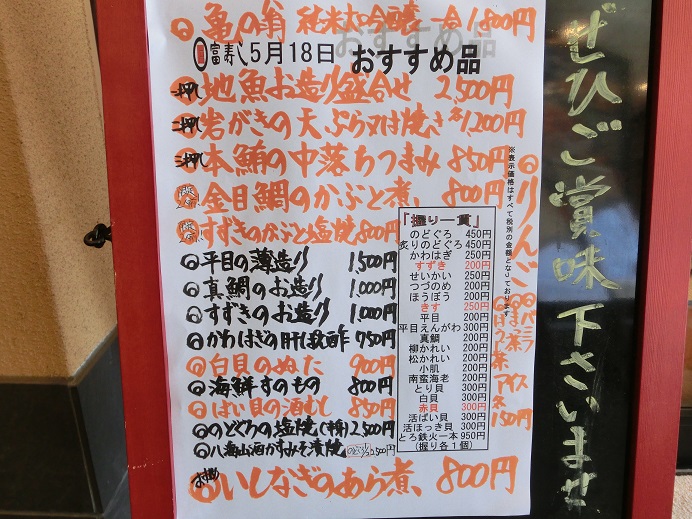 亀の翁 純米大吟醸 一合 1,800円
富寿し 5月18日 おすすめ品
一押し 地魚お造り盛合せ 2,500円
二押し 岩がきの天ぷら又は焼き 1,200円
三押し 本鮪の中落ちつまみ 850円
金目鯛のかぶと煮 800円
すずきのかぶと塩焼 800円
平目の薄造り 1,500円
真鯛のお造り 1,000円
すずきのお造り 1,000円
かわはぎの肝ぽん酢 750円
白貝のぬた 900円
海鮮すのもの 800円
ばい貝の酒むし 850円
のどぐろの塩焼(半身) 2,500円
八海山酒かすみそ漬焼 のどぐろ 2,500円
いしなぎのあら煮 800円
『握り一貫』
のどぐろ 450円
炙りのどぐろ 450円
かわはぎ 250円
すずき 200円
せいかい 250円
つづのめ 200円
ほうぼう 200円
きす 250円
平目 200円
平目えんがわ 300円
真鯛 200円
柳かれい 200円
松かれい 200円
小肌 200円
南蛮海老 200円
とり貝 300円
白貝 300円
赤貝 300円
活ばい貝 300円
活ほっき貝 300円
とろ鉄火一本 950円
(握り各1個)
※表示価格はすべて税別の金額となっております
りんご
バニラ
ほうじ茶
アイス
各150円
ぜひご賞味下さいませ